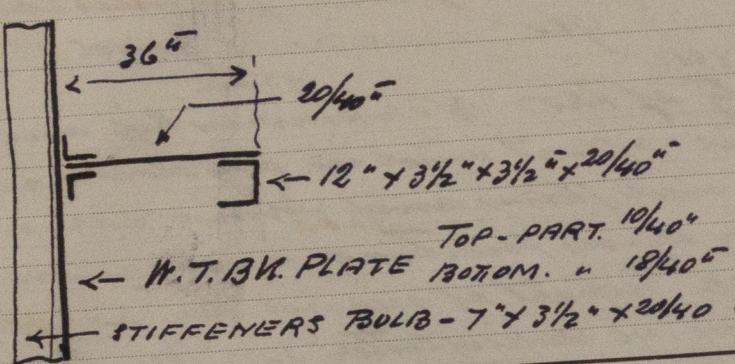 36"
20/40"
12" x 3½" x 3½" x 20/40"
TOP-PART. 10/40"
W.T.BK. PLATE BOTTOM. " 18/40"
STIFFENERS BULB - 7" x 3½" x 20/40